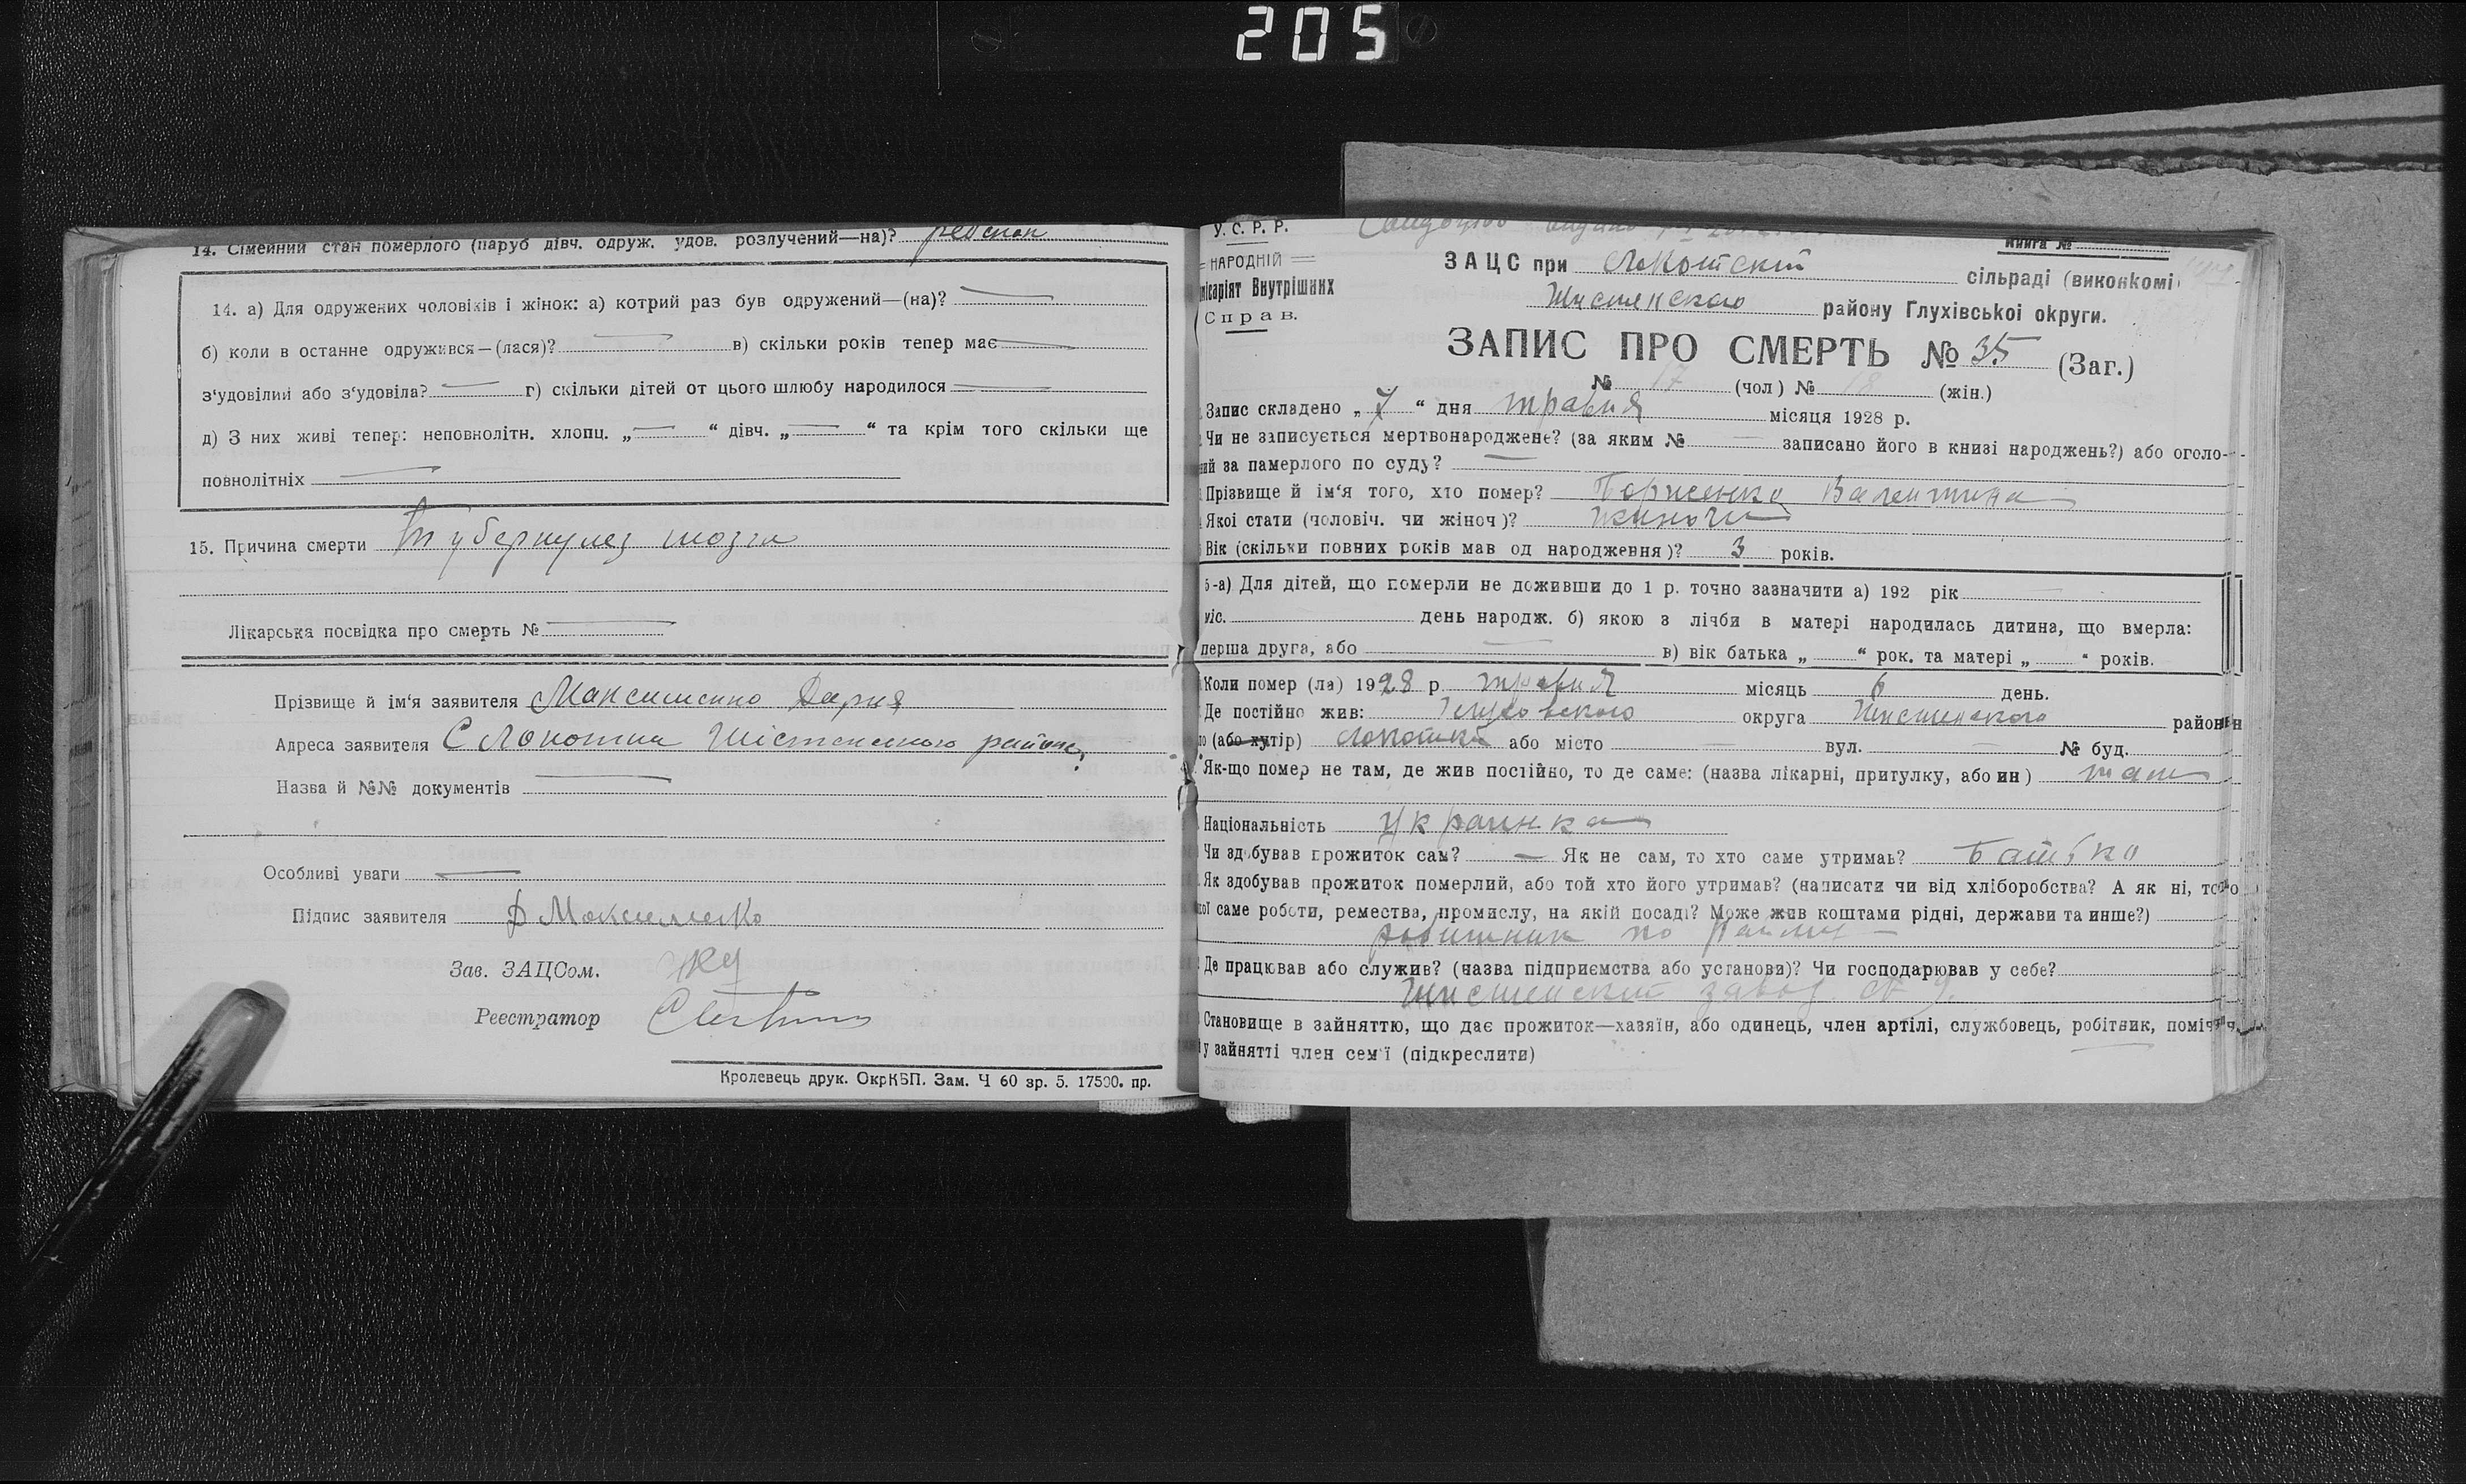 205
14. Сімейний стан померлого (паруб дівч. одруж. удов. розлучений—на)?
14. а) Для одружених чоловіків і жінок: а) котрий раз був одружений—(на)?
б) коли в останне одружився—(лася)? в) скільки років тепер має
з‘удовілий або з‘удовіла? г) скільки дітей от цього шлюбу народилося
д) З них живі тепер: неповнолітн. хлопц. „ “ дівч. „ “ та крім того скільки ще
повнолітніх
15. Причина смерти Туберкулез мозга
Лікарська посвідка про смерть №
Прізвище й ім‘я заявителя Максименко Дария
Адреса заявителя С Локотки района
Назва й №№ документів
Особливі уваги
Підпис заявителя Д Максименко
Зав. ЗАЦСом.
Реестратор
Кролевець друк. ОкрКВП. Зам. Ч 60 зр. 5. 17500. пр.
У. С. Р. Р.
НАРОДНІЙ
місаріят Внутрішних
Справ.
Книга №
ЗАЦС при сільраді (виконкомі
району Глухівської округи.
ЗАПИС ПРО СМЕРТЬ № 35 (Заг.)
№ 17 (чол) № 18 (жін.)
Запис складено „ 7 “ дня травня місяця 1928 р.
Чи не записується мертвонароджене? (за яким № записано його в книзі народжень?) або оголо-
ний за памерлого по суду?
Прізвище й ім‘я того, хто помер? Борисенко Валентина
Якої стати (чоловіч. чи жіноч)? жиноча
Вік (скільки повних років мав од народження)? 3 років.
5-а) Для дітей, що померли не доживши до 1 р. точно зазначити а) 192 рік
міс. день народж. б) якою з лічби в матері народилась дитина, що вмерла:
перша друга, або в) вік батька „ “ рок. та матері „ “ років.
Коли помер (ла) 1928 р. травня місяць 6 день.
Де постійно жив: Глуховского округа района
(або хутір) Локотки або місто вул. № буд.
Як-що помер не там, де жив постійно, то де саме: (назва лікарні, притулку, або ин) там
Національність Украинка
Чи здобував прожиток сам? — Як не сам, то хто саме утримаь? Батько
Як здобував прожиток померлий, або той хто його утримав? (написати чи від хліборобства? А як ні, то
кої саме роботи, ремества, промислу, на якій посаді? Може жив коштами рідні, держави та инше?)
робитник по найму
Де працював або служив? (назва підприємства або установи)? Чи господарював у себе?
завод № 9.
Становище в зайняттю, що дає прожиток—хазяїн, або одинець, член артілі, службовець, робітник, поміч
у зайнятті член сем‘ї (підкреслити)